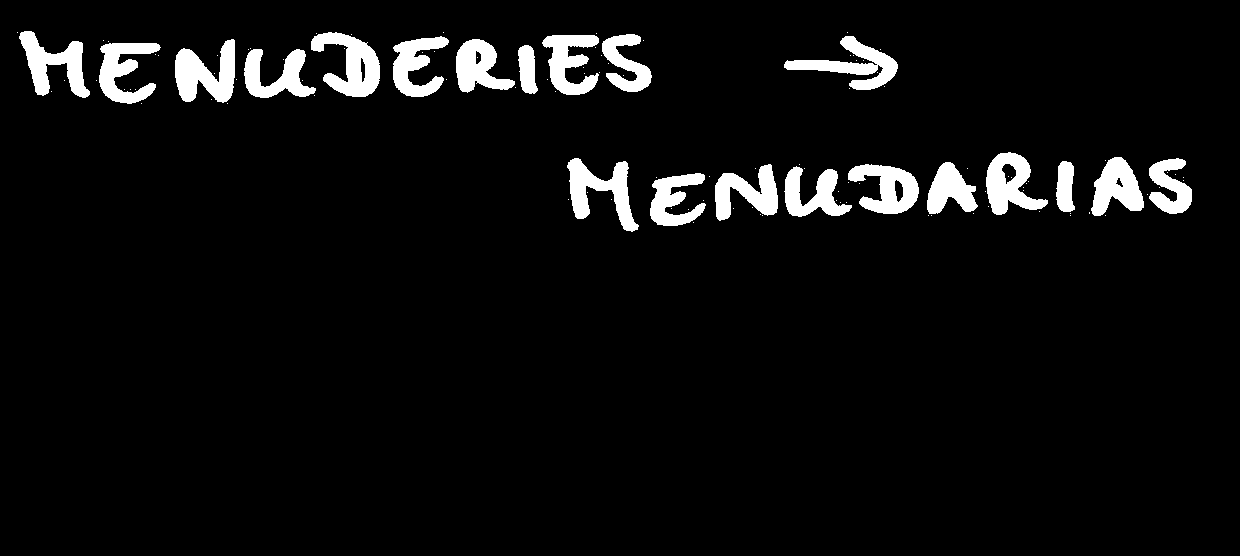 MENUDERIES →
MENUDARIAS